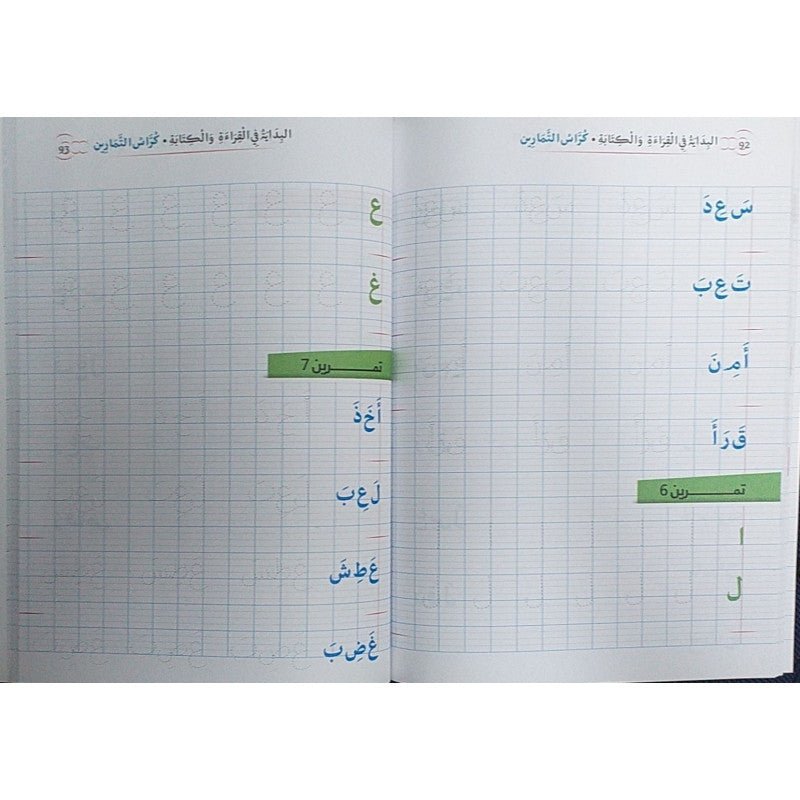 92 البِدَايَةُ فِي الْقِرَاءَةِ وَالْكِتَابَةِ • كُرَّاسُ التَّمَارِين
سَ عِ دَ
تَ عِ بَ
أَ مِ نَ
قَ رَ أَ
تمـــــرين 6
ا
ل
93 البِدَايَةُ فِي الْقِرَاءَةِ وَالْكِتَابَةِ • كُرَّاسُ التَّمَارِين
ع
غ
تمـــــرين 7
أَ خَ ذَ
لَ عِ بَ
عَ طِ شَ
غَ ضِ بَ